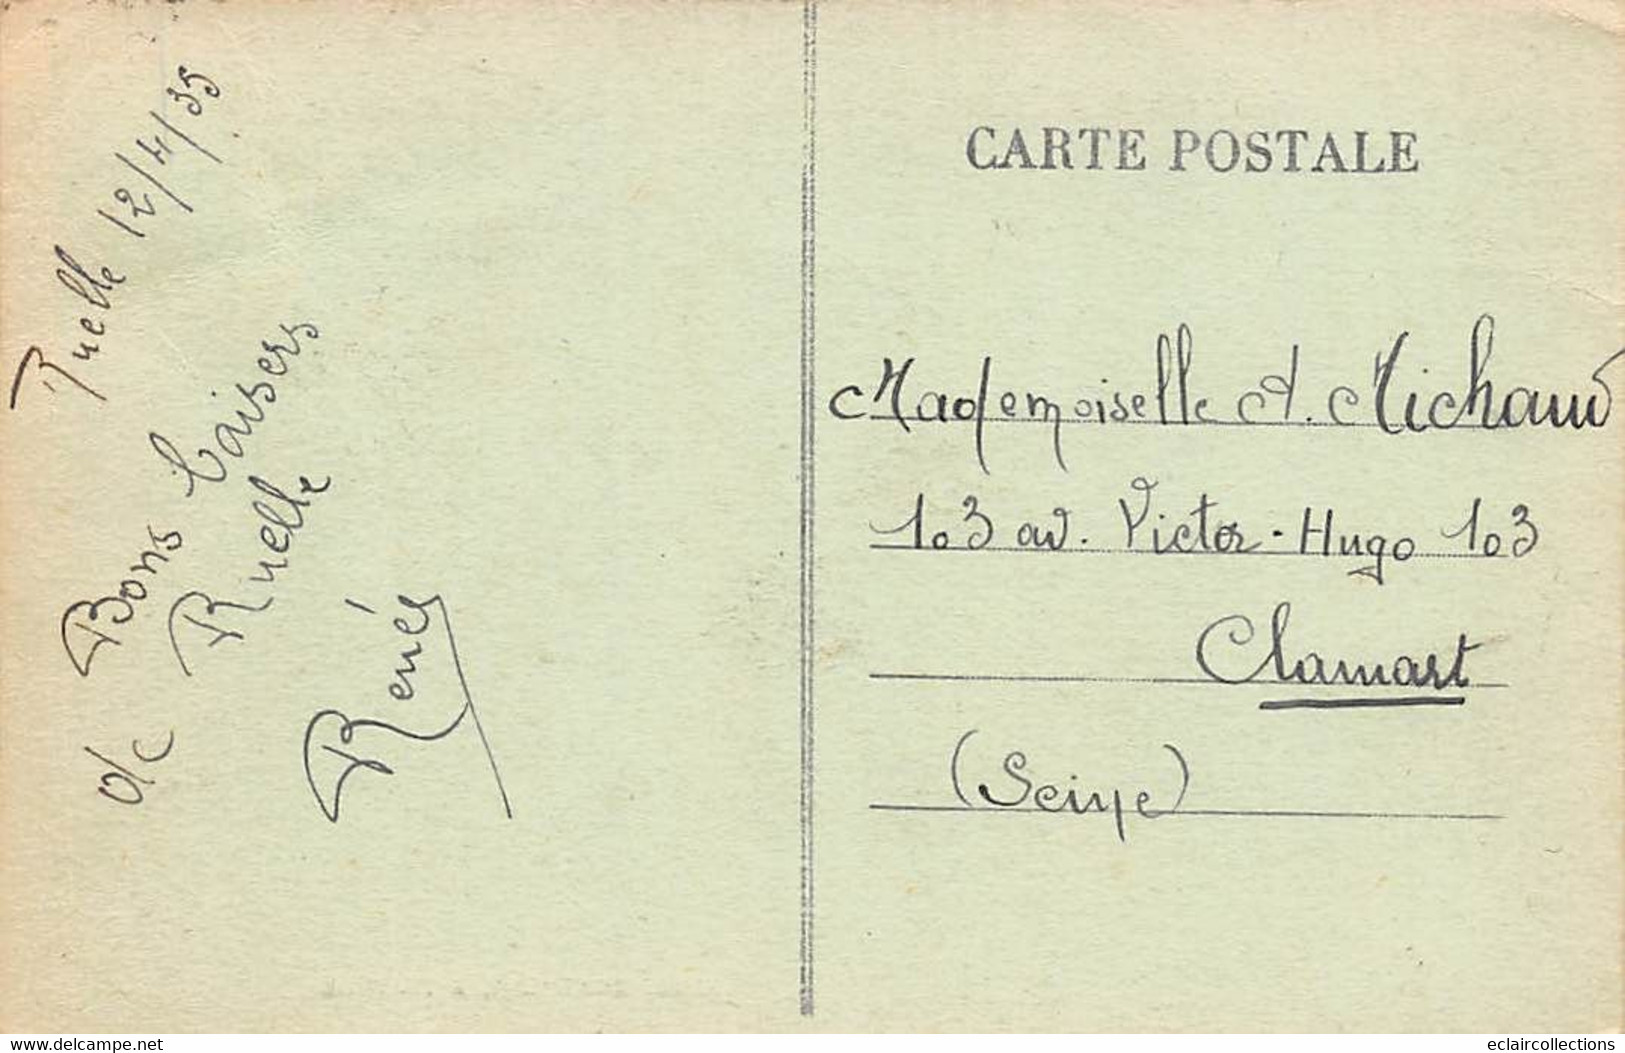 Ruelle 12/4/35
Bons Baisers
d/c Ruelle
Renée
CARTE POSTALE
Mademoiselle A. Michaud
103 av. Victor-Hugo 103
Clamart
(Seine)
www.delcampe.net
eclaircollections